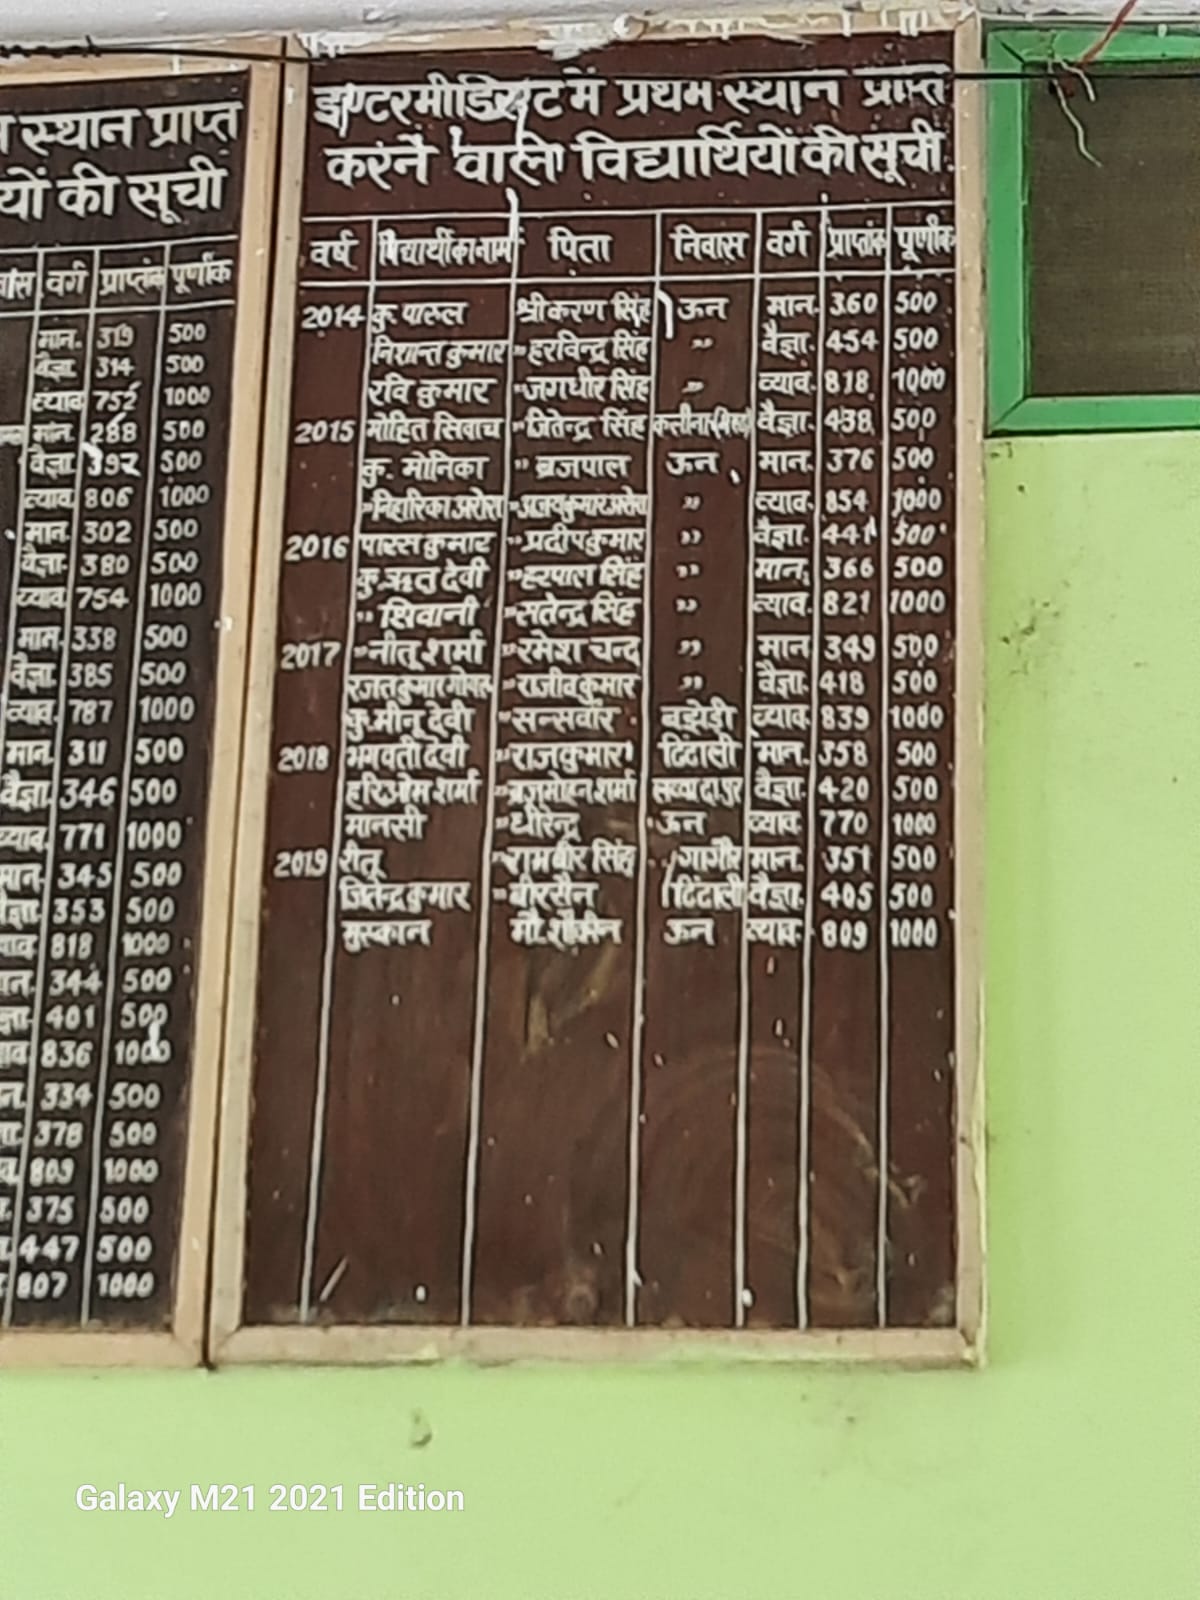 स्थान प्राप्त
यों की सूची
वर्ग प्राप्तांक पूर्णांक
मान. 319 500
वैज्ञा. 314 500
व्याव 752 1000
मान. 288 500
वैज्ञा. 392 500
व्याव 806 1000
मान. 302 500
वैज्ञा. 380 500
व्याव 754 1000
मान. 338 500
वैज्ञा. 385 500
व्याव. 787 1000
मान. 311 500
वैज्ञा. 346 500
व्याव. 771 1000
मान. 345 500
353 500
818 1000
344 500
401 500
836 1000
334 500
378 500
809 1000
375 500
447 500
807 1000
इण्टरमीडिएट में प्रथम स्थान प्राप्त
करने वाले विद्यार्थियों की सूची
वर्ष विद्यार्थी का नाम पिता निवास वर्ग प्राप्तांक पूर्णांक
2014 कु. पारुल श्री करण सिंह ऊन मान. 360 500
निशान्त कुमार " हरविन्द्र सिंह " वैज्ञा. 454 500
रवि कुमार " जगधीर सिंह " व्याव. 818 1000
2015 मोहित सिवाच " जितेन्द्र सिंह वैज्ञा. 438 500
कु. मोनिका " ब्रजपाल ऊन मान. 376 500
" निहारिका अरोरा " अजय कुमार अरोरा " व्याव. 854 1000
2016 पारस कुमार " प्रदीप कुमार " वैज्ञा. 441 500
कु. ऋतु देवी " हरपाल सिंह " मान. 366 500
" शिवानी " सतेन्द्र सिंह " व्याव. 821 1000
2017 " नीतू शर्मा " रमेश चन्द " मान. 349 500
रजत कुमार गोयल " राजीव कुमार " वैज्ञा. 418 500
कु. मीनू देवी " सन्सवीर बझेडी व्याव. 839 1000
2018 भगवती देवी " राजकुमार टिटाली मान. 358 500
हरिओम शर्मा " ब्रजमोहन शर्मा वैज्ञा. 420 500
मानसी " धीरेन्द्र ऊन व्याव. 770 1000
2019 रीतू " रामबीर सिंह गागौर मान. 351 500
जितेन्द्र कुमार " बीरसैन टिटाली वैज्ञा. 405 500
मुस्कान मौ. शौकीन ऊन व्याव. 809 1000
Galaxy M21 2021 Edition